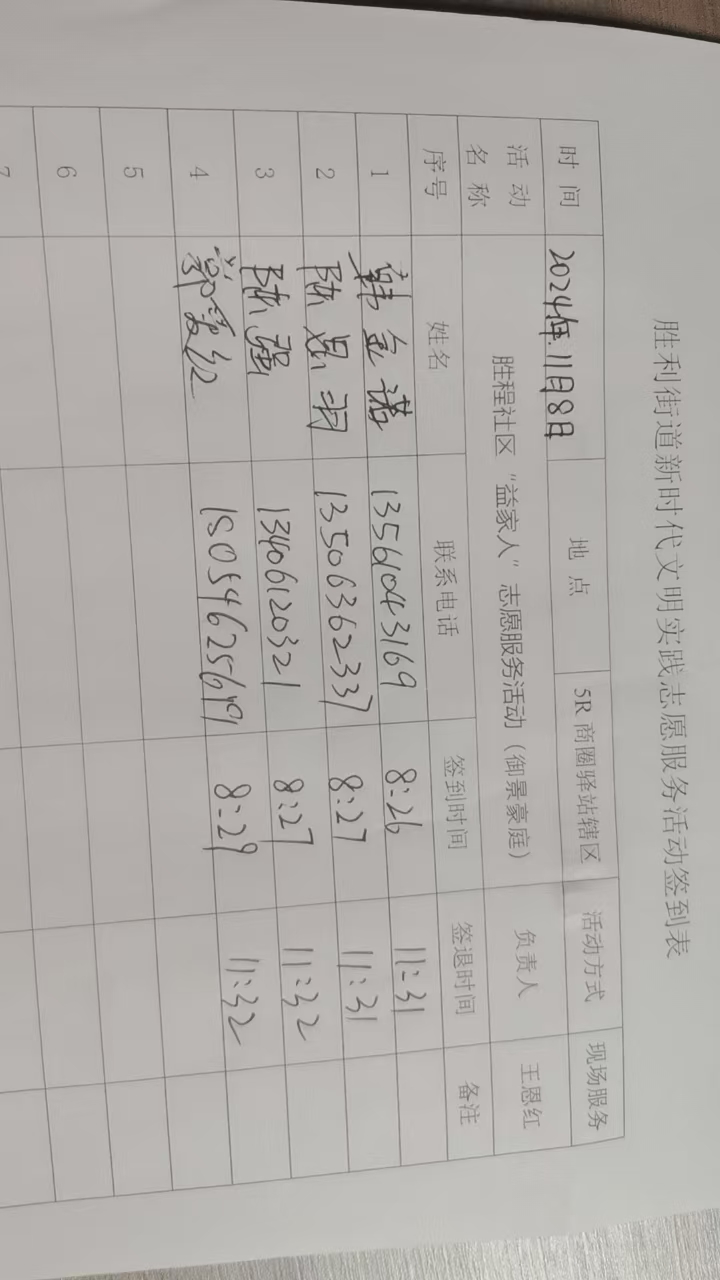 胜利街道新时代文明实践志愿服务活动签到表
时间 2024年.11月8日 地点 5R商圈驿站辖区 活动方式 现场服务
活动名称 胜程社区“益家人”志愿服务活动（御景豪庭） 负责人 王恩红
序号 姓名 联系电话 签到时间 签退时间 备注
1 韩金诺 13561043169 8:26 11:31
2 陈恩羽 13506362337 8:27 11:31
3 陈强 13406120321 8:27 11:32
4 8:29 11:32
5
6
7